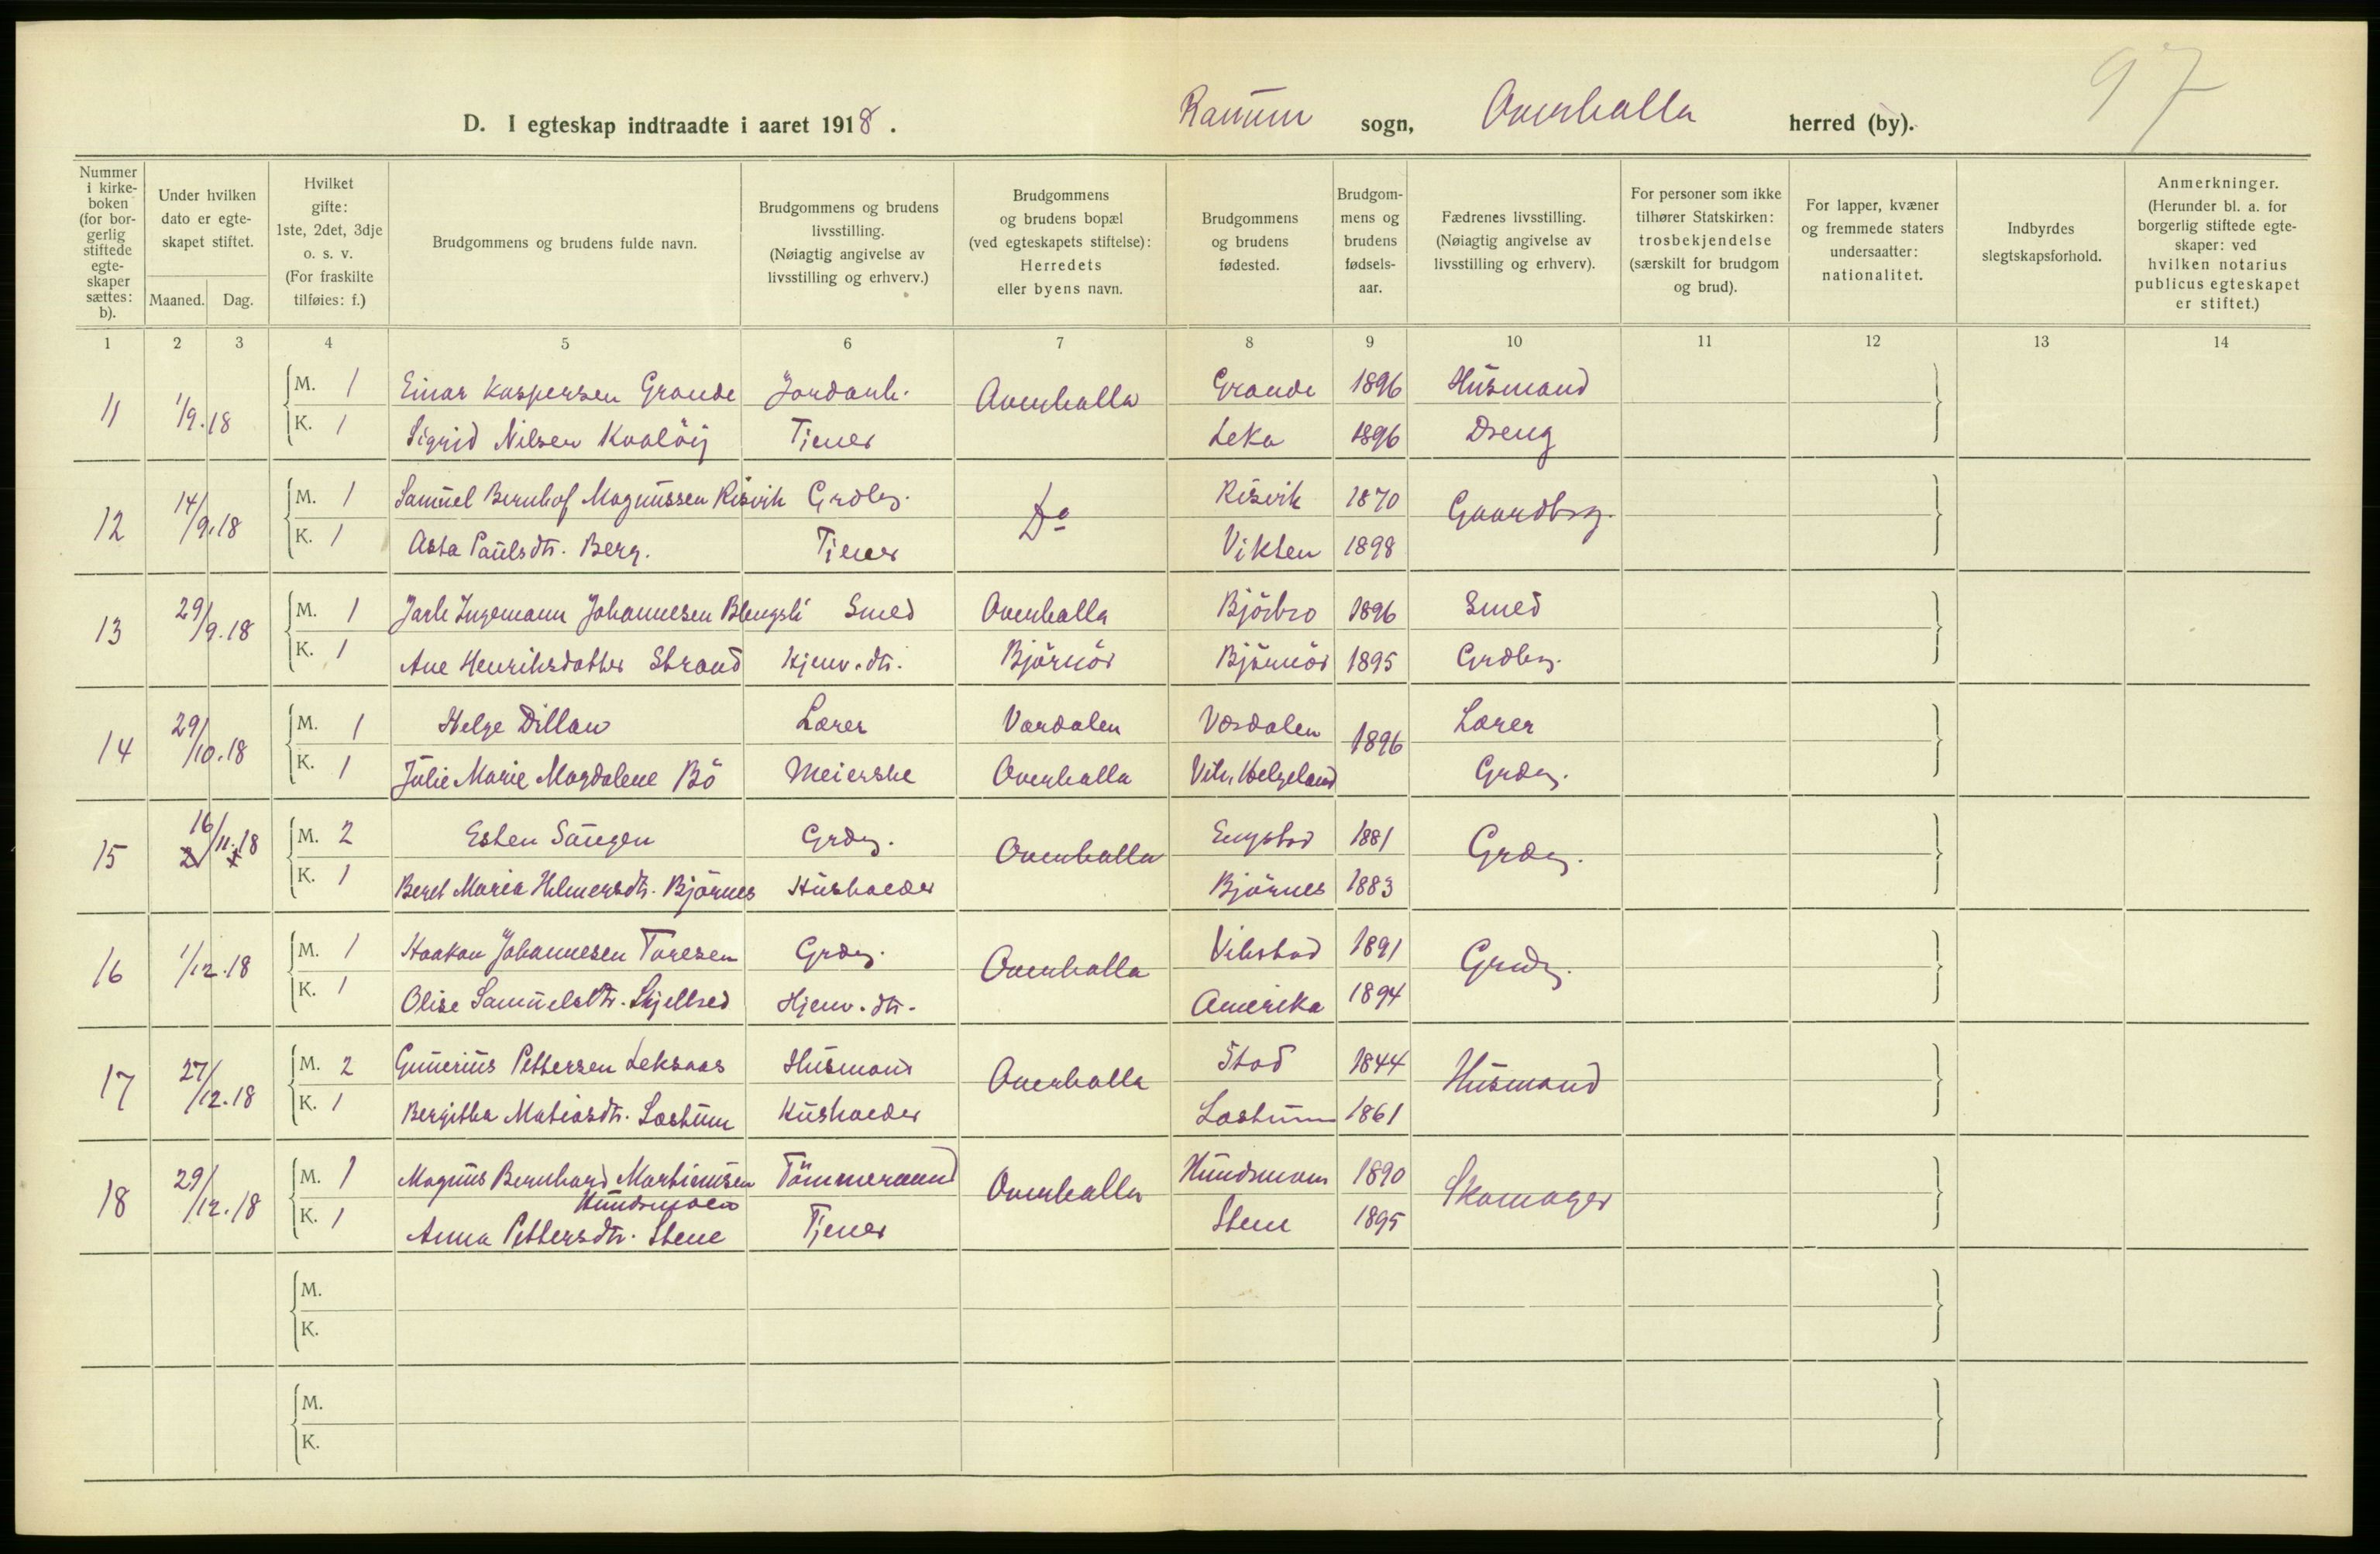 97
D. I egteskap indtraadte i aaret 1918. Ranum sogn, Overhalla herred (by).
Nummer i kirke-boken (for bor-gerlig stiftede egte-skaper sættes: b).
Under hvilken dato er egte-skapet stiftet.
Maaned. Dag.
Hvilket gifte: 1ste, 2det, 3dje o. s. v. (For fraskilte tilføies: f.)
Brudgommens og brudens fulde navn.
Brudgommens og brudens livsstilling. (Nøiagtig angivelse av livsstilling og erhverv.)
Brudgommens og brudens bopæl (ved egteskapets stiftelse): Herredets eller byens navn.
Brudgommens og brudens fødested.
Brudgom-mens og brudens fødsels-aar.
Fædrenes livsstilling. (Nøiagtig angivelse av livsstilling og erhverv).
For personer som ikke tilhører Statskirken: trosbekjendelse (særskilt for brudgom og brud).
For lapper, kvæner og fremmede staters undersaatter: nationalitet.
Indbyrdes slegtskapsforhold.
Anmerkninger. (Herunder bl. a. for borgerlig stiftede egte-skaper: ved hvilken notarius publicus egteskapet er stiftet.)
1 2 3 4 5 6 7 8 9 10 11 12 13 14
11 1/9.18 M. 1 Einar Kaspersen Grande Jordarb. Overhalla Grande 1896 Husmand
K. 1 Sigrid Nilsen Kvaløij Tjener Leka 1896 Dreng
12 14/9.18 M. 1 Samuel Bernhof Magnussen Risvik Grdbr. Do Risvik 1870 Gaardbrg.
K. 1 Asta Paulsdtr. Berg. Tjener Vikten 1898
13 29/9.18 M. 1 Jarle Ingemann Johannesen Blengsli Smed Overhalla Björbro 1896 Smed
K. 1 Ane Henriksdatter Strand Hjemv. dtr. Björnör Björnör 1895 Grdbrg.
14 29/10.18 M. 1 Helge Dillan Lærer Værdalen Værdalen 1896 Lærer
K. 1 Julie Marie Magdalene Bö Meierske Overhalla Vik, Helgeland Grdbr.
15 16/11.18 M. 2 Esten Saugen Grdbr. Overhalla Engstad 1881 Grdbr.
K. 1 Beret Maria Helmersdtr. Björnes Husholder Björnes 1883
16 1/12.18 M. 1 Haakon Johannesen Toresen Grdbr. Overhalla Vibstad 1891 Grdbr.
K. 1 Olise Samuelsdtr. Skjelbred Hjemv. dtr. Amerika 1894
17 27/12.18 M. 2 Gunerius Pettersen Leksaas Husmand Overhalla Stod 1844 Husmand
K. 1 Bergitha Matiasdtr. Lostum Husholder Lostum 1861
18 29/12.18 M. 1 Magnus Bernhard Martinusen Tömmermand Overhalla Hundsmoen 1890 Skomager
Hundsmoen
K. 1 Anna Pettersdtr. Stene Tjener Stene 1895
M.
K.
M.
K.